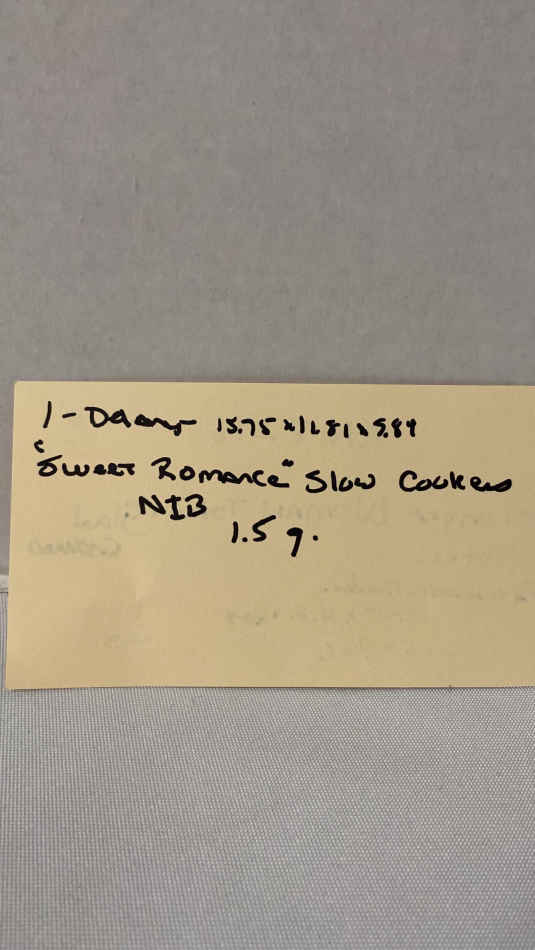 1 - 15.75 x 11.81 x 9.84
"Sweet Romance" Slow Cooker
NIB
1.5 q.